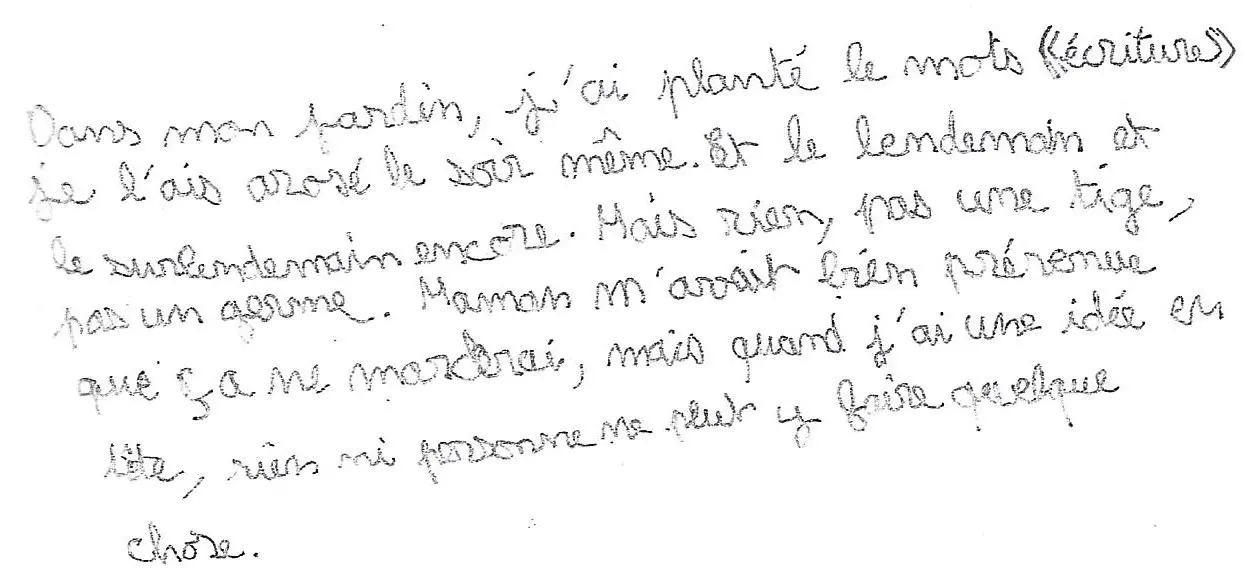 Dans mon jardin, j'ai planté le mots «écriture»
je l'ais arosé le soir même. Et le lendemain et
le surlendemain encore. Mais rien, pas une tige,
pas un germe. Maman m'avait bien prérenue
que ça ne marcherai, mais quand j'ai une idée en
tête, rien ni personne ne peut y faire quelque
chose.